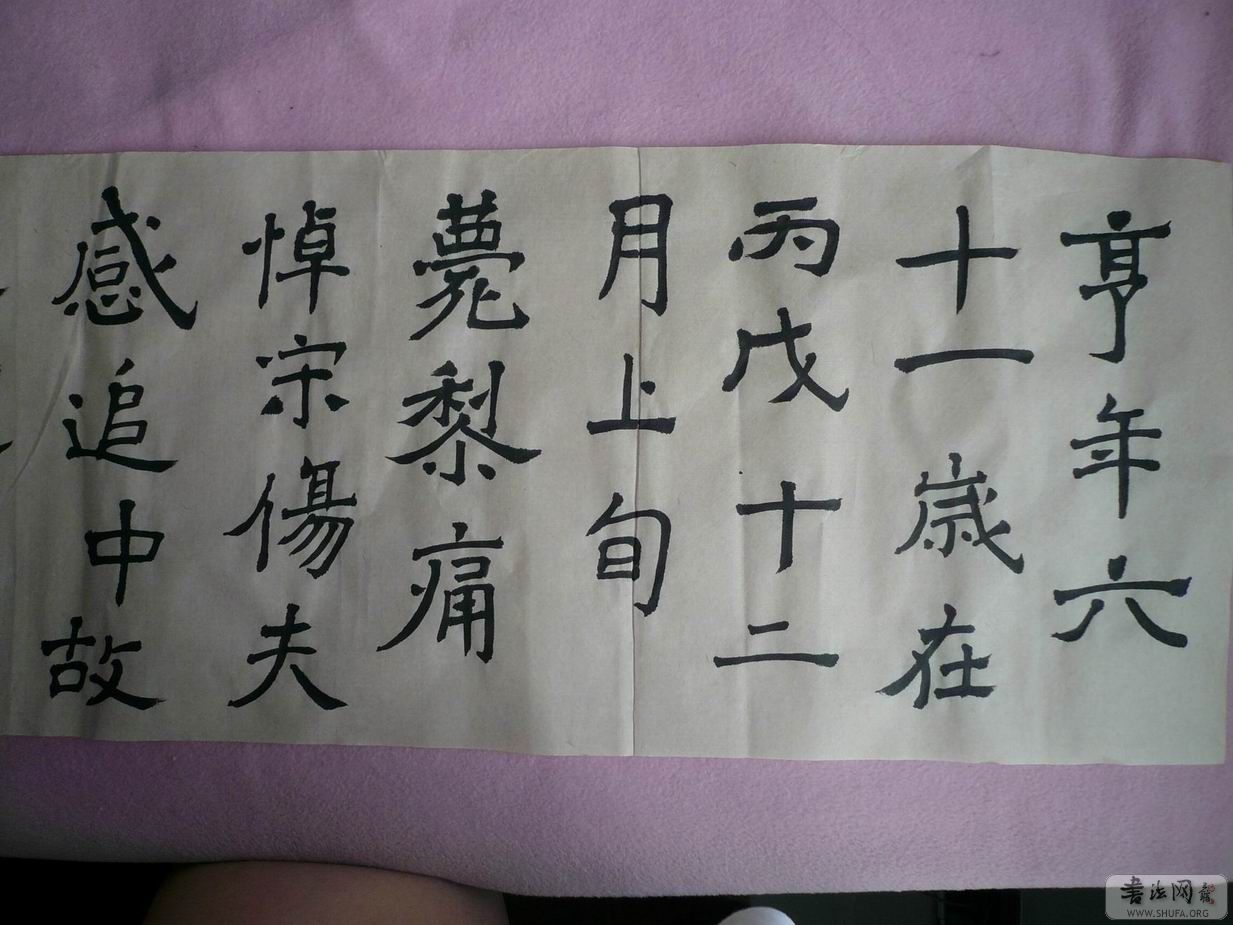 亨年六
十一歲在
丙戊十二
月上旬
薨黎痛
悼宗傷夫
感追中故
書法网
WWW.SHUFA.ORG